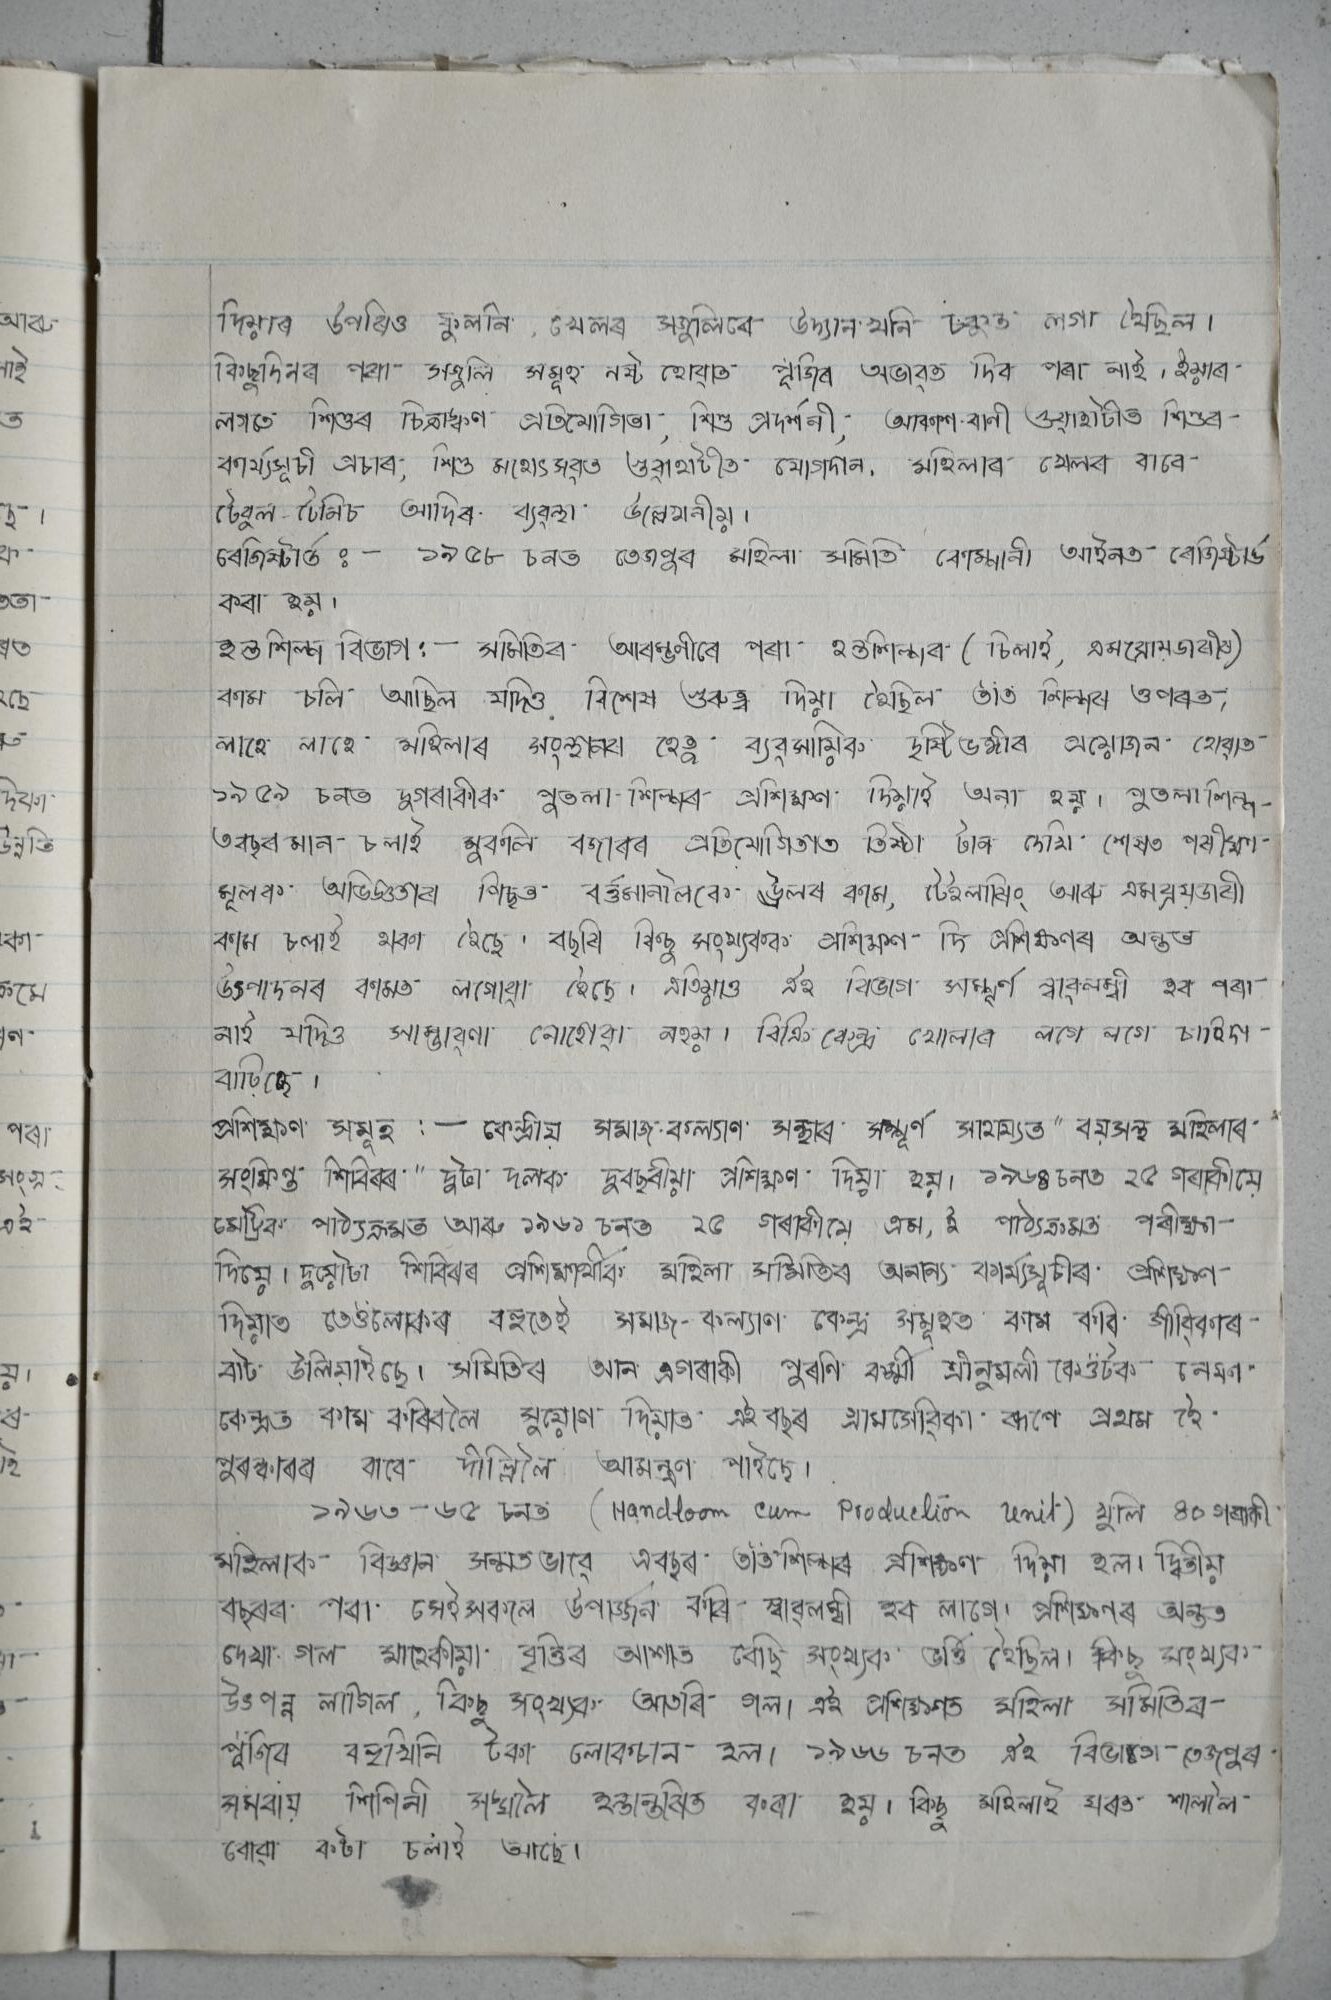 দিয়াৰ উপৰিও ফুলনি, খেলৰ সজুলিৰে উদ্যান খনি চকুত লগা হৈছিল।
কিছুদিনৰ পৰা সজুলি সমূহ নষ্ট হোৱাত পূঁজিৰ অভাৱত দিব পৰা নাই। ইয়াৰ
লগতে শিশুৰ চিত্ৰাঙ্কণ প্ৰতিযোগিতা, শিশু প্ৰদৰ্শনী, আকাশ বাণী গুৱাহাটীত শিশুৰ
কাৰ্য্যসূচী প্ৰচাৰ, শিশু মহোৎসৱত গুৱাহাটীত যোগদান, মহিলাৰ খেলৰ বাবে
টেবুল টেনিচ আদিৰ ব্যৱস্থা উল্লেখনীয়।
ৰেজিষ্টাৰ্ড :— ১৯৫৮ চনত তেজপুৰ মহিলা সমিতি কোম্পানী আইনত ৰেজিষ্টাৰ্ড
কৰা হয়।
হস্তশিল্প বিভাগ :— সমিতিৰ আৰম্ভণীৰে পৰা হস্তশিল্পৰ (চিলাই, এমব্ৰোয়ডাৰীৰ)
কাম চলি আছিল যদিও বিশেষ গুৰুত্ব দিয়া হৈছিল তাঁত শিল্পৰ ওপৰত,
লাহে লাহে মহিলাৰ সংস্থাপনৰ হেতু ব্যৱসায়িক দৃষ্টিভঙ্গীৰ প্ৰয়োজন হোৱাত
১৯৫৯ চনত দুগৰাকীক পুতলা শিল্পৰ প্ৰশিক্ষণ দিয়াই অনা হয়। পুতলা শিল্প
৩বছৰ মান চলাই মুকলি বজাৰৰ প্ৰতিযোগিতাত তিষ্ঠা টান দেখি শেষত পৰীক্ষা
মূলক অভিজ্ঞতাৰ পিছত বৰ্ত্তমানলৈকে উলৰ কাম, টেইলাৰিং আৰু এমব্ৰয়ডাৰী
কাম চলাই থকা হৈছে। বছৰি কিছু সংখ্যকক প্ৰশিক্ষণ দি প্ৰশিক্ষণৰ অন্তত
উত্পাদনৰ কামত লগোৱা হৈছে। এতিয়াও এই বিভাগ সম্পূৰ্ণ স্বাৱলম্বী হব পৰা
নাই যদিও সম্ভাৱনা নোহোৱা নহয়। বিক্ৰি কেন্দ্ৰ খোলাৰ লগে লগে চাহিদা
বাঢ়িছে।
প্ৰশিক্ষণ সমূহ :— কেন্দ্ৰীয় সমাজ কল্যাণ সন্থাৰ সম্পূৰ্ণ সাহায্যত "বয়সস্থ মহিলাৰ
সংক্ষিপ্ত শিবিৰৰ" দুটা দলক দুবছৰীয়া প্ৰশিক্ষণ দিয়া হয়। ১৯৬৪ চনত ২৫ গৰাকীয়ে
মেট্ৰিক পাঠ্যক্ৰমত আৰু ১৯৬১ চনত ২৫ গৰাকীয়ে এম, ই পাঠ্যক্ৰমত পৰীক্ষা
দিয়ে। দুয়োটা শিবিৰৰ প্ৰশিক্ষাৰ্থীক মহিলা সমিতিৰ অন্যান্য কাৰ্য্যসূচীৰ প্ৰশিক্ষণ
দিয়াত তেওঁলোকৰ বহুতেই সমাজ-কল্যাণ কেন্দ্ৰ সমূহত কাম কৰি জীৱিকাৰ
বাট উলিয়াইছে। সমিতিৰ আন এগৰাকী পুৰণি কৰ্ম্মী শ্ৰীনুমলী কেওঁটক
কেন্দ্ৰত কাম কৰিবলৈ সুযোগ দিয়াত এই বছৰ গ্ৰামসেৱিকা ৰূপে প্ৰথম হৈ
পুৰস্কাৰৰ বাবে দিল্লীলৈ আমন্ত্ৰণ পাইছে।
১৯৬৩-৬৫ চনত (Handloom cum Production Unit) খুলি ৪০ গৰাকী
মহিলাক বিজ্ঞান সন্মতভাৱে এবছৰ তাঁতশিল্পৰ প্ৰশিক্ষণ দিয়া হল। দ্বিতীয়
বছৰৰ পৰা সেইসকলে উপাৰ্জ্জন কৰি স্বাৱলম্বী হব লাগে। প্ৰশিক্ষণৰ অন্তত
দেখা গল মাহেকীয়া বৃত্তিৰ আশাত বেছি সংখ্যক ভৰ্ত্তি হৈছিল। কিছু সংখ্যক
উৎপন্ন লাগিল, কিছু সংখ্যক আতৰি গল। এই প্ৰশিক্ষণত মহিলা সমিতিৰ
পূঁজিৰ বহুখিনি টকা লোকচান হল। ১৯৬৬ চনত এই বিভাগ তেজপুৰ
সমবায় শিপিনী সঙ্ঘলৈ হস্তান্তৰিত কৰা হয়। কিছু মহিলাই ঘৰত শাললৈ
বোৱা কটা চলাই আছে।